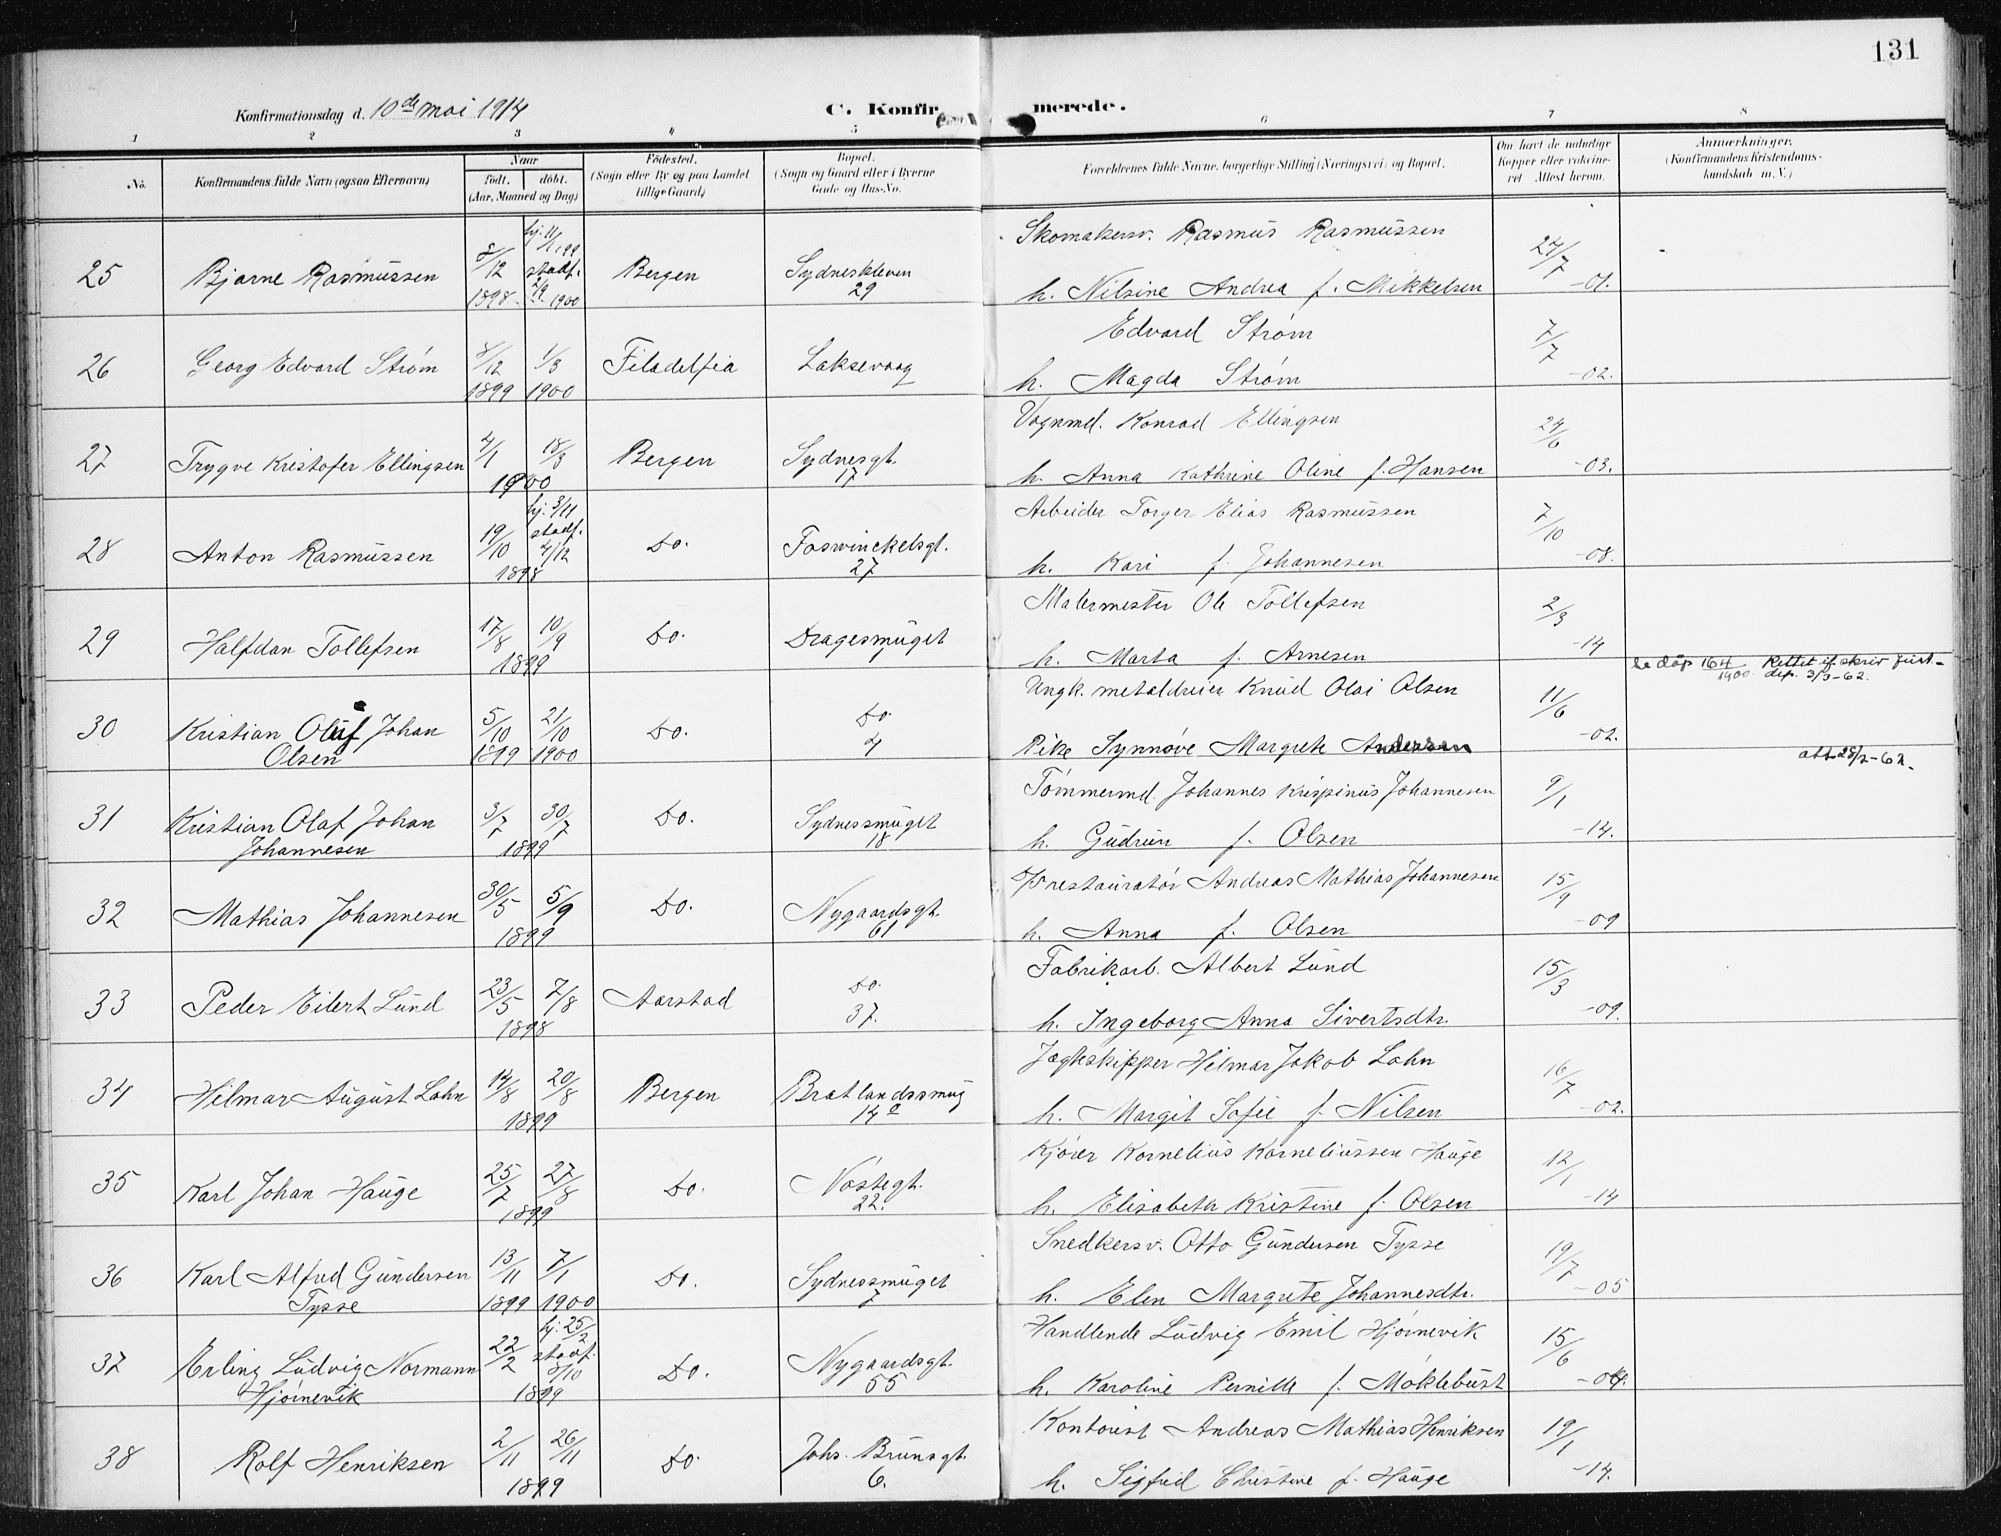 131
Konfirmationsdag d. 10de mai 1914 C. Konfirmerede.
1 2 3 4 5 6 7 8
No. Konfirmandens fulde Navn (ogsaa Efternavn) Naar födt. döbt. (Aar, Maaned og Dag) Födested. (Sogn eller By og paa Landet tillige Gaard) Bopæl. (Sogn og Gaard eller i Byerne Gade og Hus-No. Forældrenes fulde Navne, borgerlige Stilling (Næringsvei) og Bopæl. Om havt de naturlige Kopper eller vaccineret Attest herom. Anmerkninger. (Konfirmandens Kristendomskundskab m. V.)
25 Bjarne Rasmussen 8/12 1898 hj. 11/1 1899 stadf. 1900 Bergen Sydneskleven 29 Skomakersv. Rasmus Rasmussen
h. Nilsine Andrea f. Mikkelsen 24/7 -01.
26 Georg Edvard Strøm 8/12 1899 1/3 1900 Filadelfia Laksevaag Edvard Strøm
h. Magda Strøm 7/7 -02.
27 Trygve Kristofer Ellingsen 4/1 18/3 1900 Bergen Sydnesgt. 17 Vognmd. Konrad Ellingsen
h. Anna Kathrine Oline f. Hansen 24/6 -03.
28 Anton Rasmussen 19/10 hj. 3/11 stadf. 4/12 1898 Do. Foswinckelsgt. 27 Arbeider Torger Elias Rasmussen
h. Kari f. Johannesen 7/10 -08.
29 Halfdan Tollefsen 17/8 10/9 1899 Do. Dragesmuget 7 Malermester Ole Tollefsen
h. Marta f. Arnesen 2/3 -14
30 Kristian Oluf Johan Olsen 5/10 1899 21/10 1900 Do. Do. 4 Ungk. metaldreier Knud Olai Olsen
Pike Synnøve Margrete Andersen 11/6 -02. Se dåp 164/1900. Rettet if. skriv just-dep. 3/3-62.
att. 28/2-62.
31 Kristian Olaf Johan Johannesen 3/7 30/7 1899 Do. Sydnessmuget 18 Tømmermd. Johannes Krispinus Johannesen
h. Gudrun f. Olsen 9/1 -14.
32 Mathias Johannesen 30/5 5/9 1899 Do. Nygaardsgt. 61 restauratør Andreas Mathias Johannesen
h. Anna f. Olsen 15/9 -09
33 Peder Eilert Lund 23/5 7/8 1898 Aarstad Do. 37. Fabrikarb. Albert Lund
h. Ingeborg Anna Sivertsdtr. 15/3 -09.
34 Hilmar August Lohn 14/8 20/8 1899 Bergen Bratlandssmug 14a Jægteskipper Hilmar Jakob Lohn
h. Margit Sofie f. Nilsen 16/7 -02.
35 Karl Johan Hauge 25/7 27/8 1899 Do. Nøstegt. 22. Kjører Kornelius Korneliussen Hauge
h. Elisabeth Kristine f. Olsen 12/1 -14
36 Karl Alfred Gundersen Tysse 13/11 1899 7/1 1900 Do. Sydnessmuget 7 Snedkersv. Otto Gundersen Tysse
h. Elen Margrete Johannesdtr. 19/7 -05
37 Erling Ludvig Normann Hjørnevik 22/2 hj. 25/2 stadf. 8/10 1899 Do. Nygaardsgt. 55 Handlende Ludvig Emil Hjørnevik
h. Karoline Pernille f. Møklebust 15/6 -04.
38 Rolf Henriksen 2/11 26/11 1899 Do. Johs. Brunsgt. 6. Kontorist Andreas Mathias Henriksen
h. Sigfrid Christine f. Hauge 19/1 -14.